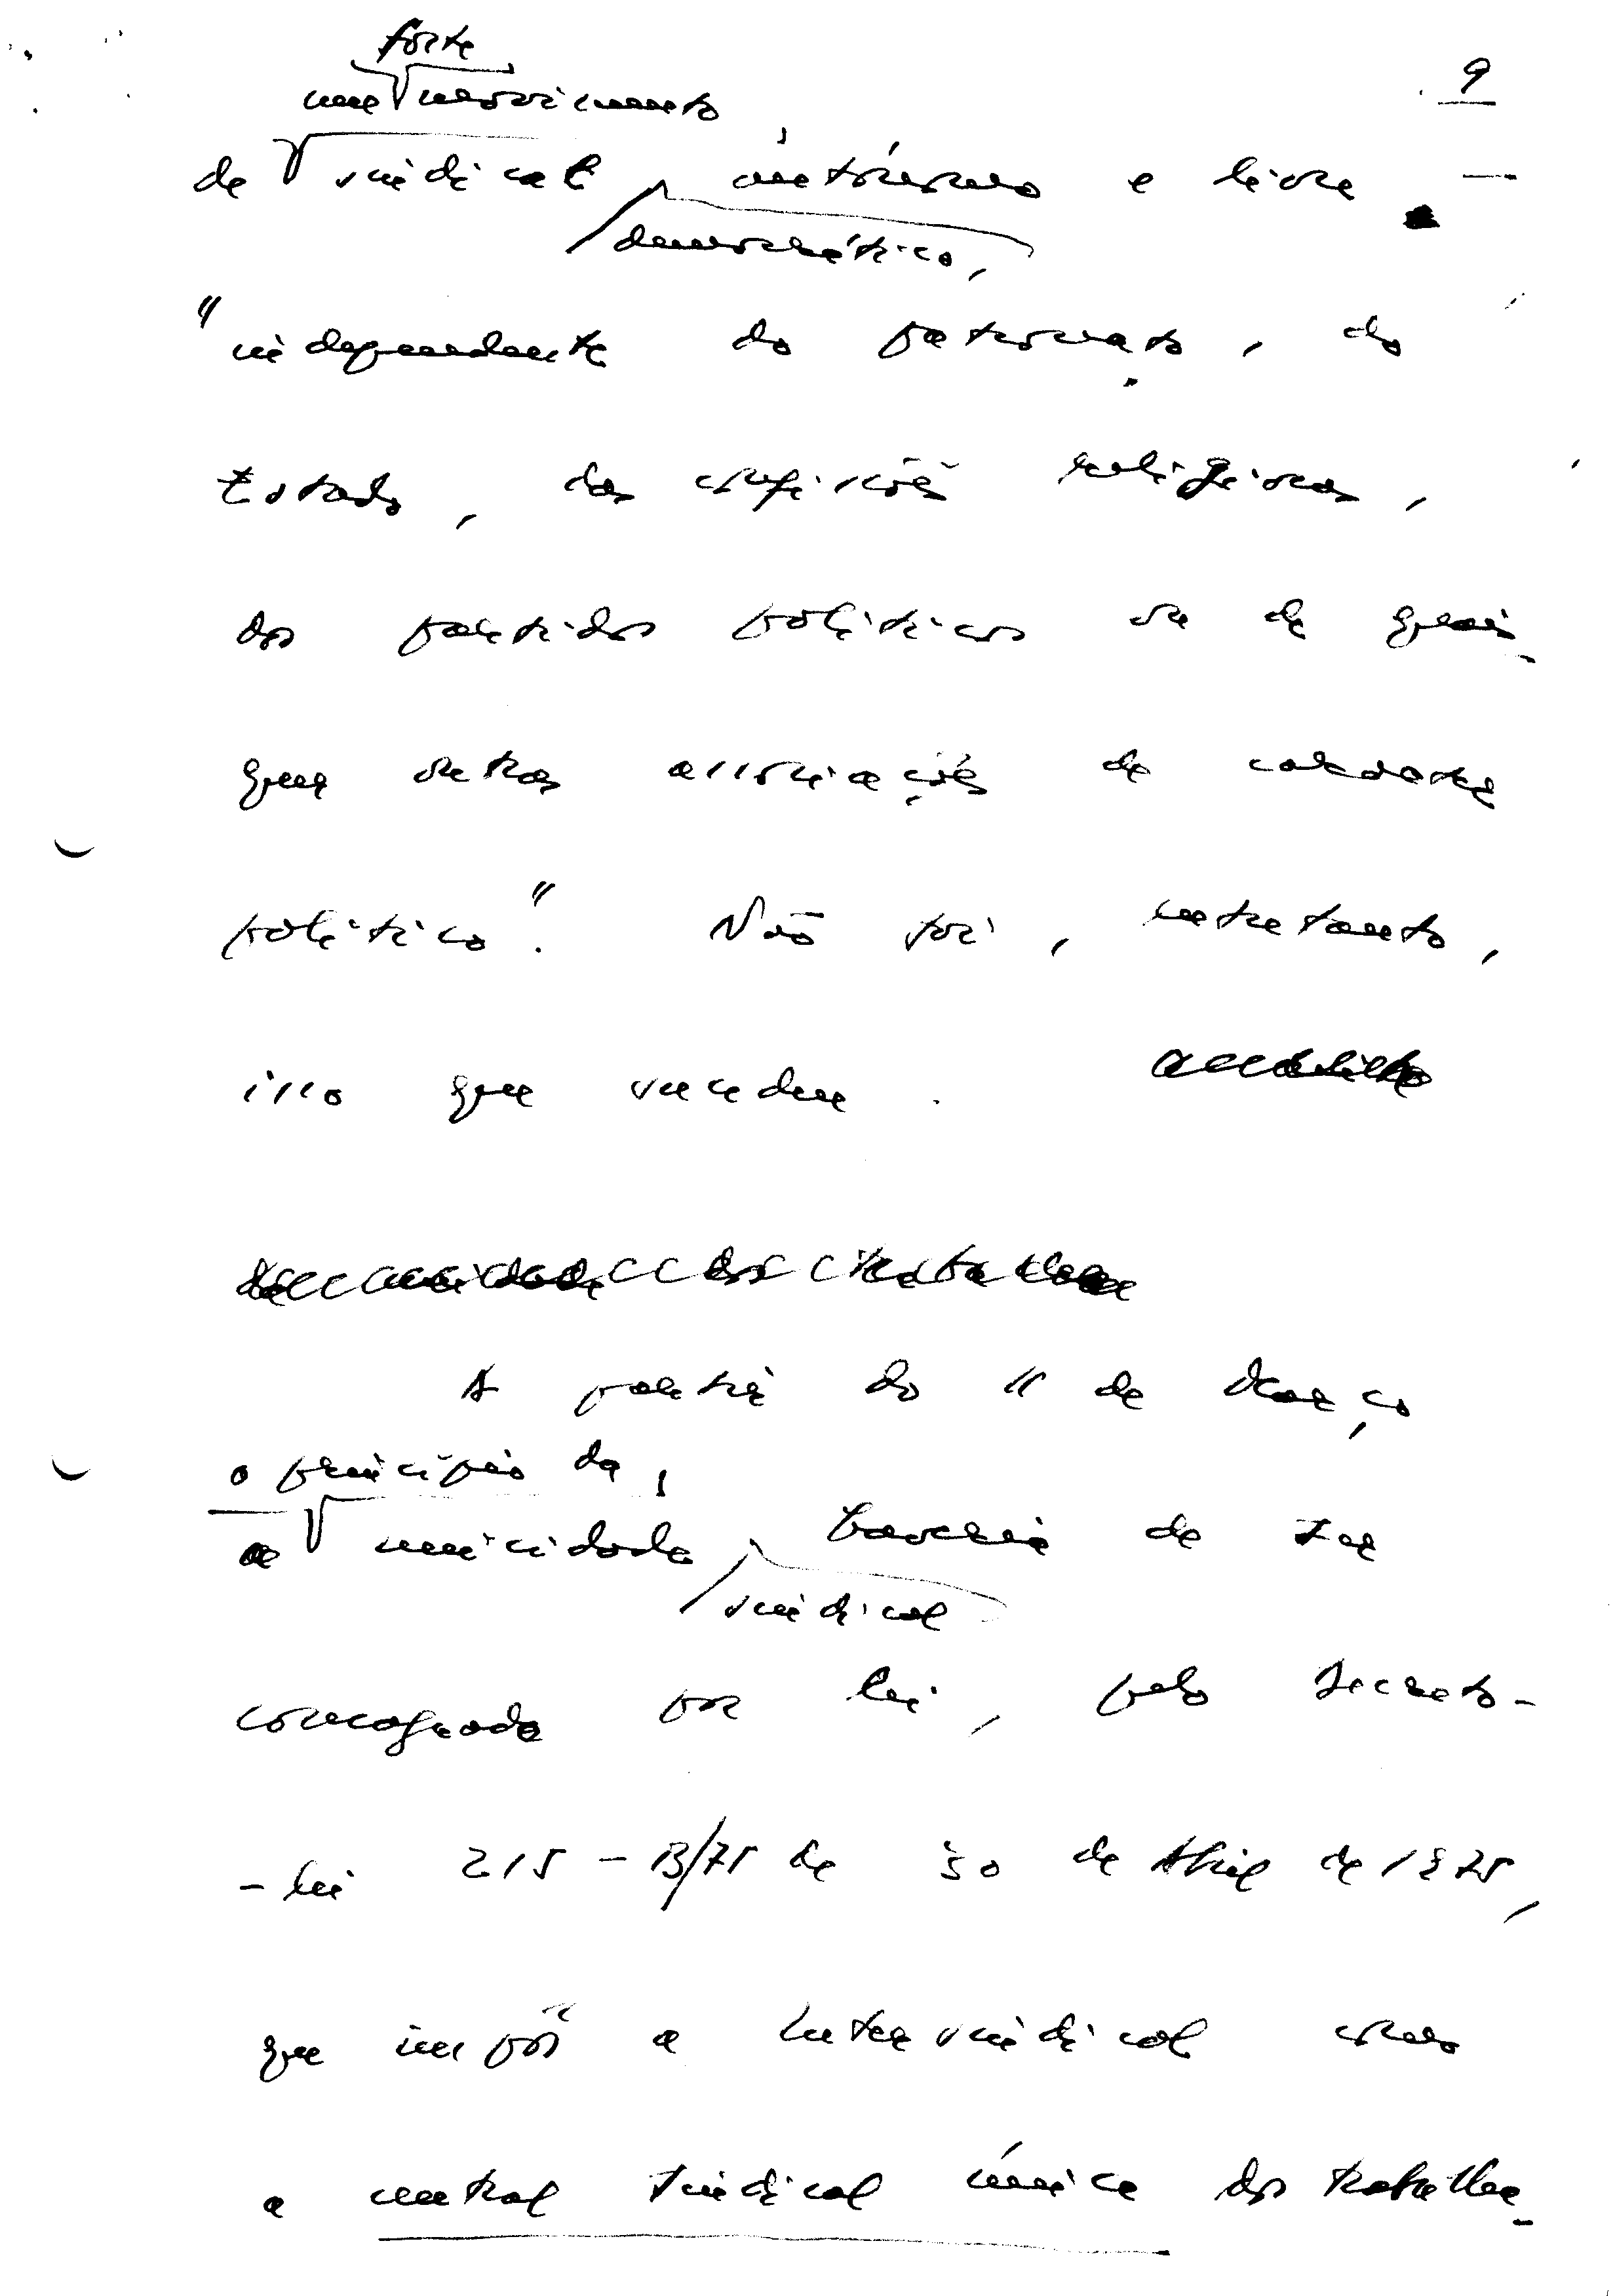 forte
9
um movimento
de sindical, autónomo e livre —
democrático,
"independente do patronato, do
Estado, das confissões religiosas,
dos partidos políticos ou de quais-
quer outras associações de carácter
político". Não foi, entretanto,
isso que sucedeu.
A partir do 11 de Março
o princípio da
a unicidade, haveria de ser
sindical
consagrado por lei, pelo Decreto-
-lei 215-B/75 de 30 de Abril de 1975,
que impôs a Intersindical como
a central sindical única dos trabalha-